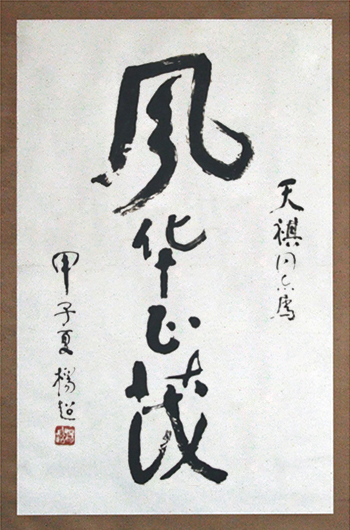 天祺同志属
风华正茂
甲子夏 杨超